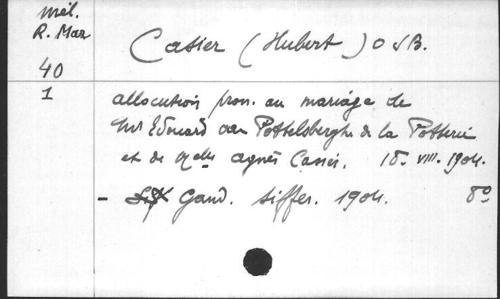 Mél.
R. Mar
40
1
Casier (Hubert) OSB.
allocution pron. au mariage de
Mr Edouard van Pottelsberghe de la Potterie
et de Melle Agnès Casier. 18. VIII. 1904.
- Gand. Siffer. 1904. 8°